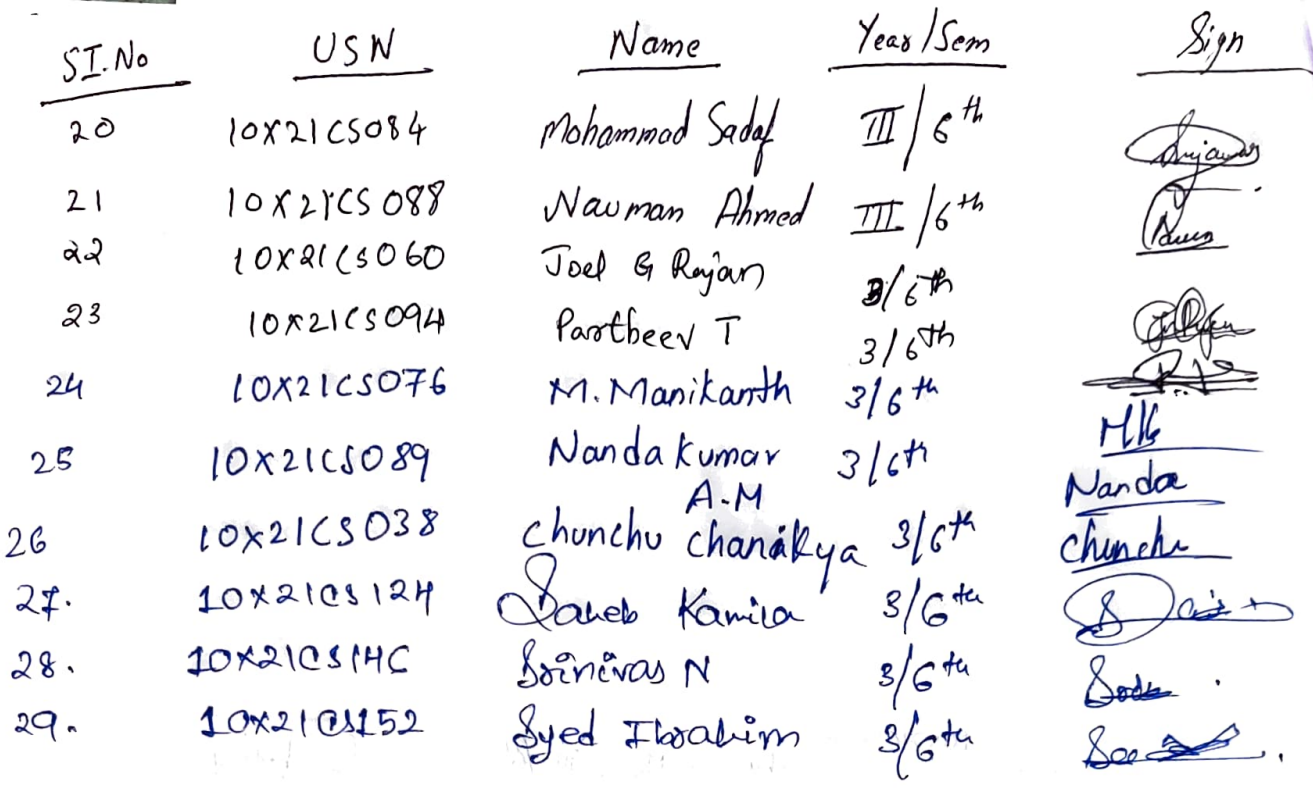 SI.No USN Name Year/Sem Sign
20 10X21CS084 Mohammad Sadaf III/6th
21 10X21CS088 Nauman Ahmed III/6th
22 10X21CS060 Joel G Rajan 3/6th
23 10X21CS094 Partheev T 3/6th
24 10X21CS076 M.Manikanth 3/6th
25 10X21CS089 Nandakumar 3/6th Nanda
A.M
26 10X21CS038 Chunchu chanakya 3/6th chunchu
27. 10X21CS124 Saheb Kamila 3/6th
28. 10X21CS146 Srinivas N 3/6th
29. 10X21CS152 Syed Ibrahim 3/6th